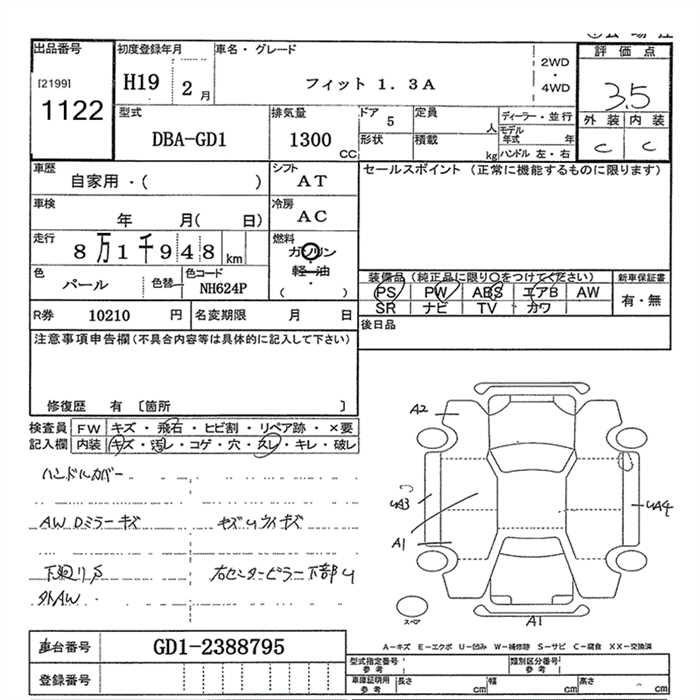 出品番号
[2199]
1122
初度登録年月
H19 2月
車名・グレード
フィット1.3A
2WD
・
4WD
評価点
3.5
外装 内装
C C
型式
DBA-GD1
排気量
1300 CC
ドア 5
定員 人
ディーラー・並行
モデル年式 年
形状
積載 kg
ハンドル 左・右
車歴
自家用・( )
シフト
AT
セールスポイント (正常に機能するものに限ります)
車検
年 月( 日)
冷房
AC
走行
8万1千948km
燃料
ガソリン
・
軽油
・
( )
色
パール
色替
色コード
NH624P
装備品 (純正品に限り○をつけてください)
新車保証書
PS PW ABS エアB AW
有・無
SR ナビ TV カワ
R券 10210 円
名変期限 月 日
後日品
注意事項申告欄(不具合内容等は具体的に記入して下さい)
修復歴 有 〔箇所 〕
検査員記入欄
FW キズ・飛石・ヒビ割・リペア跡・×要
内装 キズ・汚レ・コゲ・穴・スレ・キレ・破レ
ハンドルカバー
AW Dミラーキズ
下廻りS
外AW
右センターピラー下部U
A2
A1
A1
スペア
車台番号
GD1-2388795
登録番号
A-キズ E-エクボ U-凹み W-補修跡 S-サビ C-腐食 XX-交換済
型式指定番号
参考
類別区分番号
参考
車庫証明用
参考
長さ cm
幅 cm
高さ cm